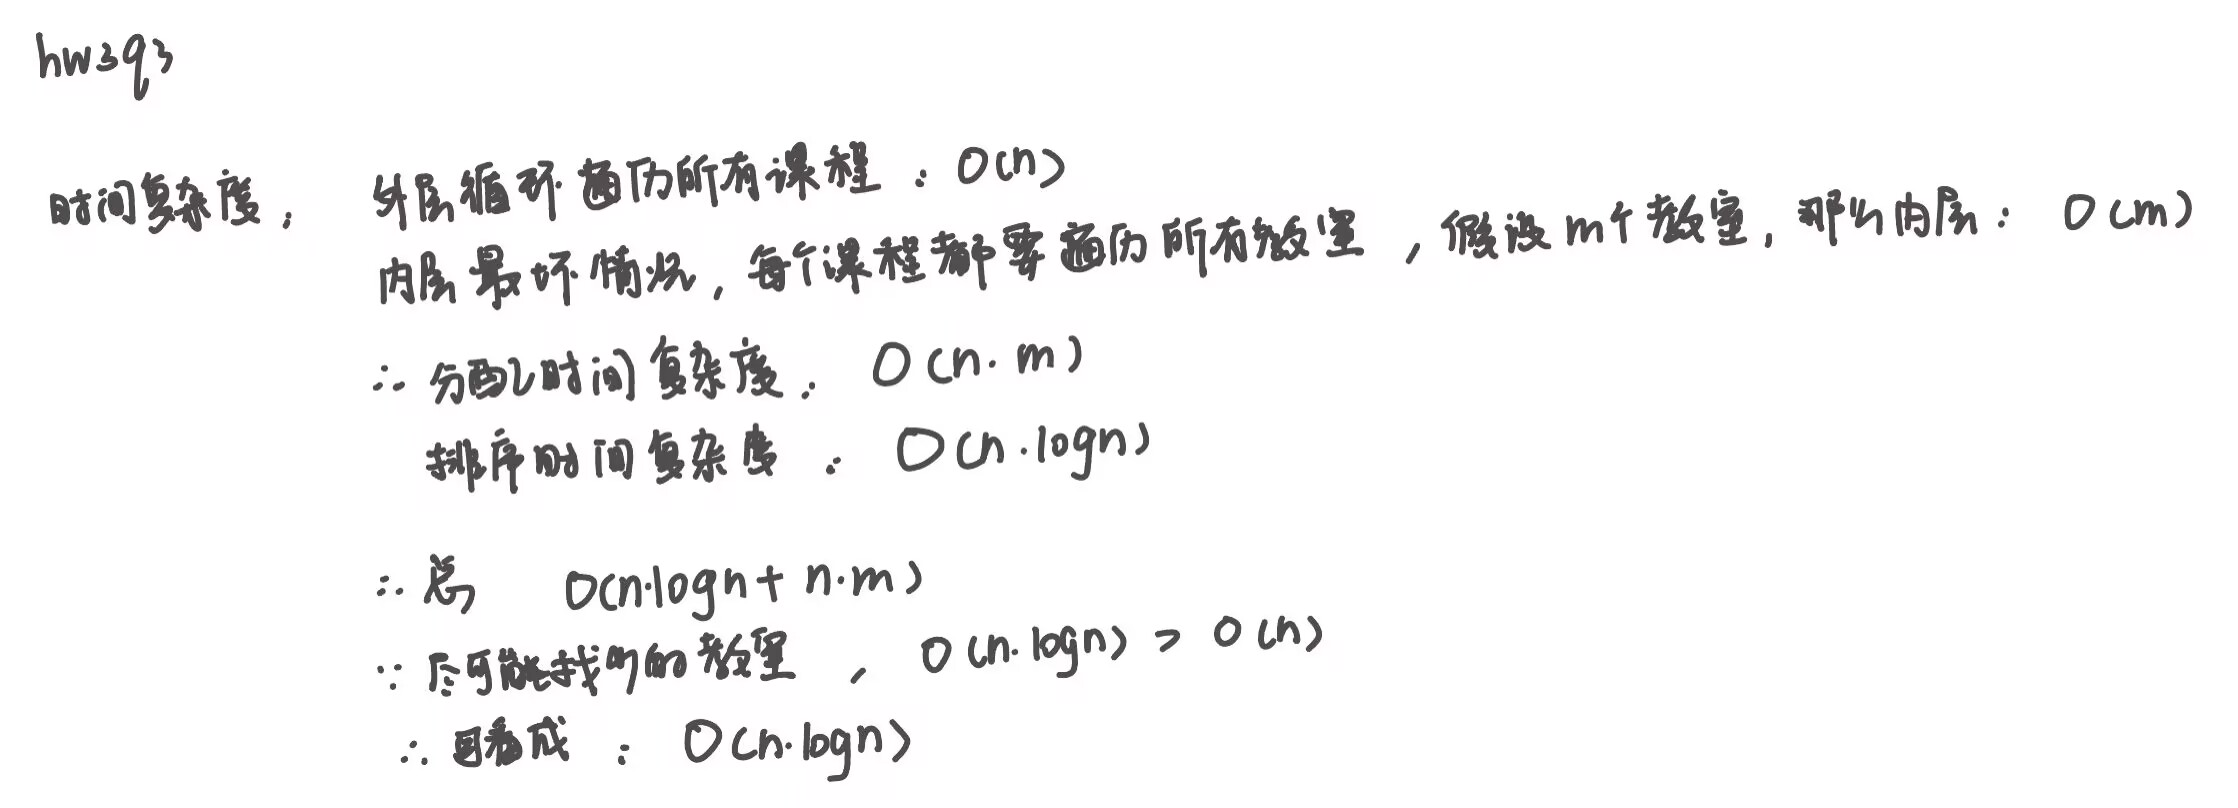 hw3q3
时间复杂度: 外层循环遍历所有课程: O(n)
内层最坏情况, 每个课程都要遍历所有教室, 假设m个教室, 那么内层: O(m)
∴ 分配时间复杂度: O(n·m)
排序时间复杂度: O(n·logn)
∴ 总 O(n·logn + n·m)
∵ 尽可能找少的教室, O(n·logn) > O(n)
∴ 可看成: O(n·logn)